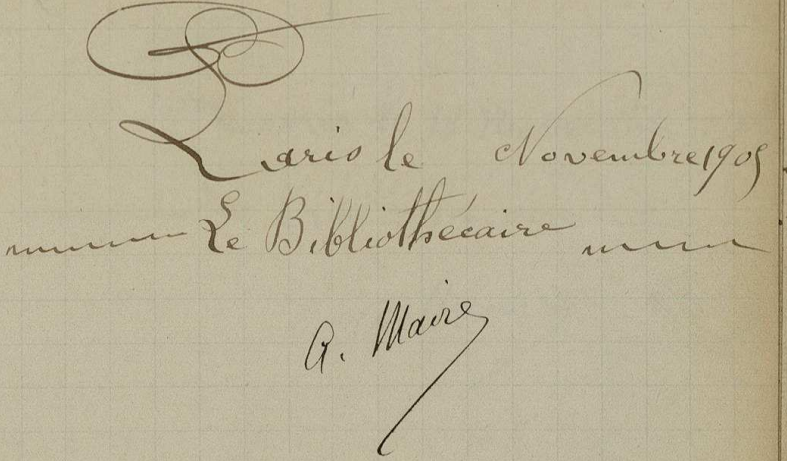 Paris le Novembre 1905
Le Bibliothécaire
A. Maire